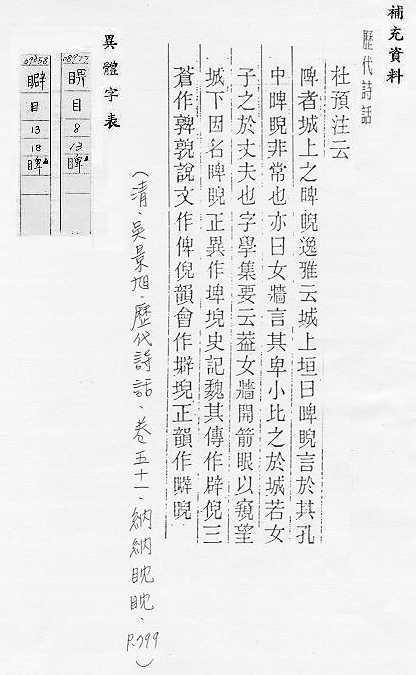 補充資料
歷代詩話
杜預注云
陴者城上之睥睨逸雅云城上垣曰睥睨言於其孔
中睥睨非常也亦曰女牆言其卑小比之於城若女
子之於丈夫也字學集要云葢女牆開箭眼以窺望
城下因名睥睨正異作埤堄史記魏其傳作辟倪三
蒼作㪏㪒說文作俾倪韻會作壀堄正韻作㿺睨
(清·吳景旭·歷代詩話·卷五十一·納納眈眈·P.799)
異體字表
08977
目
8
13
睥
09858
目
13
18
睥